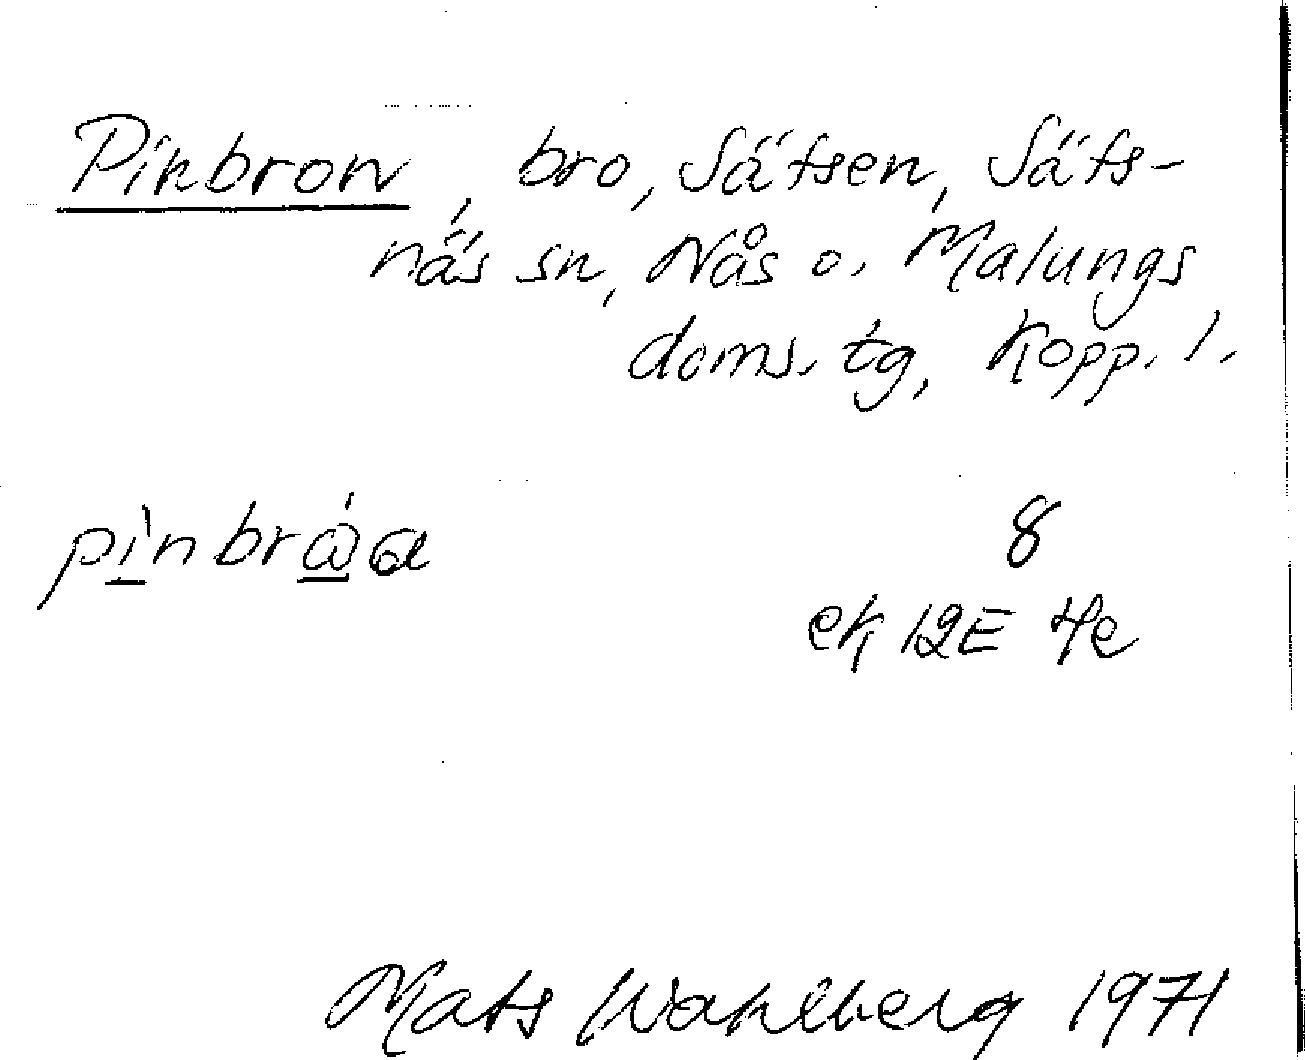 Pinbron, bro, Sätsen, Säfs-
näs sn, Nås o. Malungs
doms. tg, Kopp. l.
pìnbrǻɷa 8
ek 12E 4e
Mats Wahlberg 1971